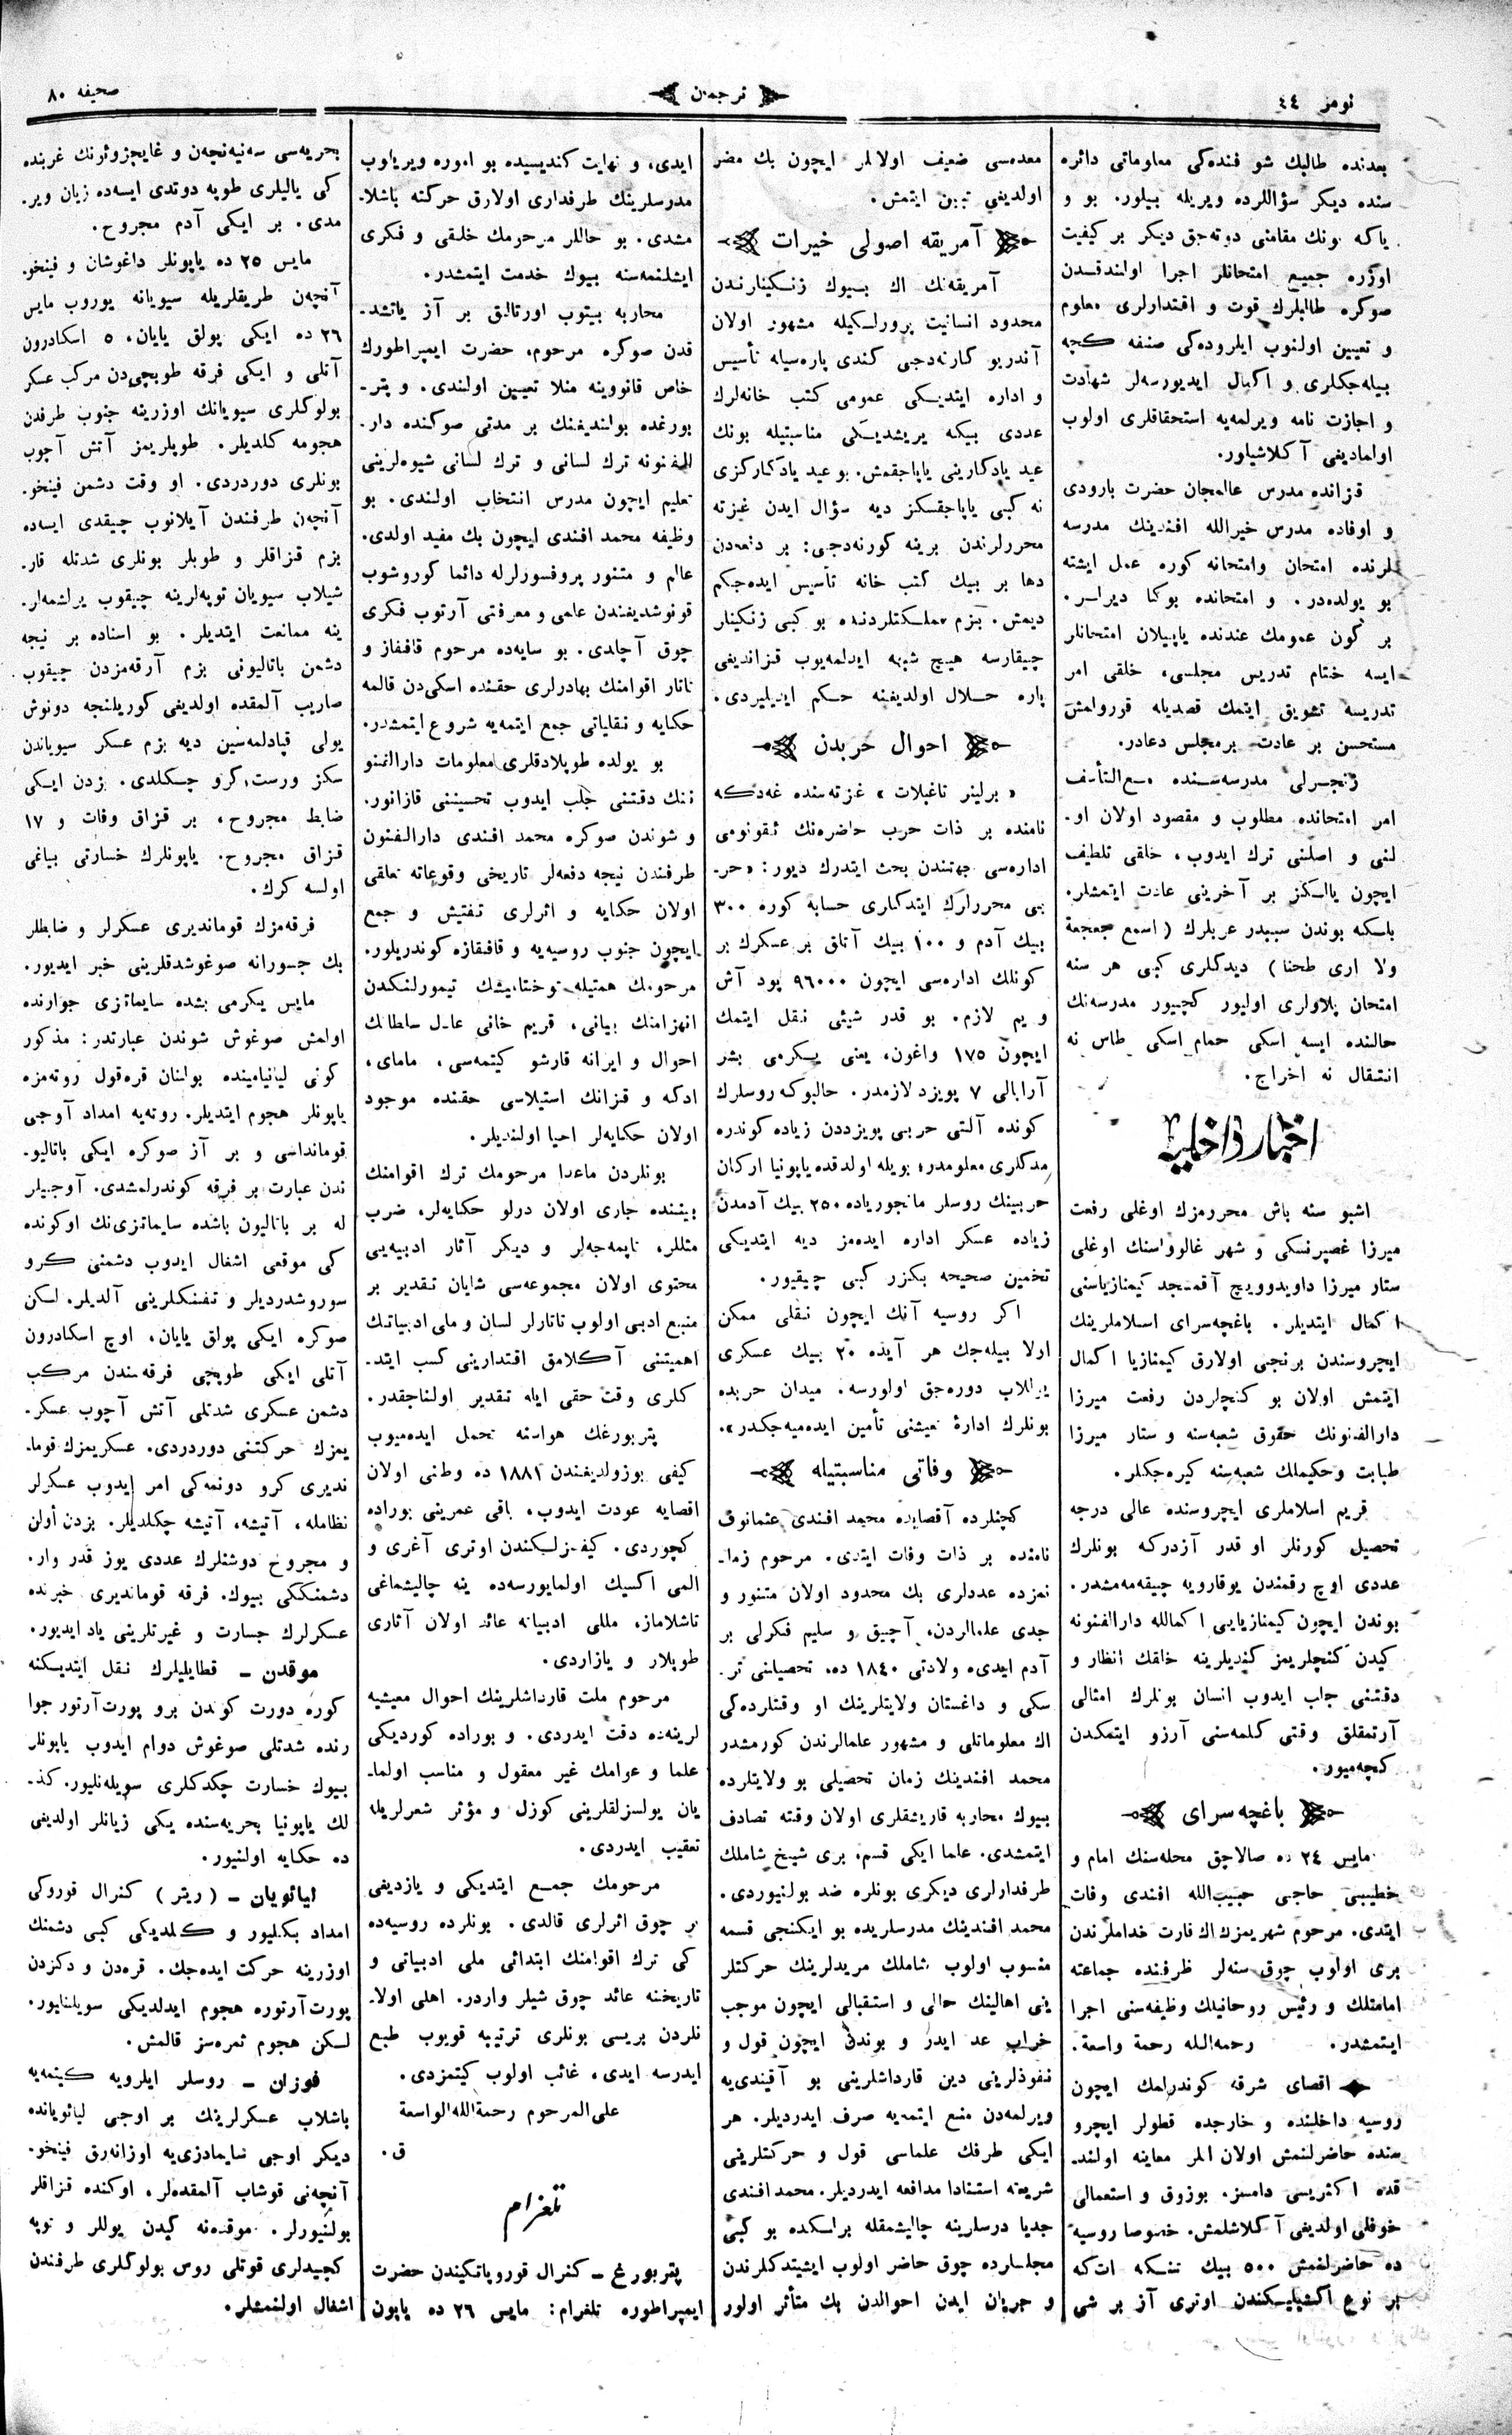 نومر ٤٤
ترجمان
صحیفه ٨٠
بعدنده طالبك شو فنده‌كی معلوماتی دائره
سنده دیكر سؤاللرده ویریله بیلور. بو و
یاكه بونك مقامنی دوته‌جق دیكر بر كیفیت
اوزره جمیع امتحانلر اجرا اولندقدن
صوكره طالبلرك قوت و اقتدارلری معلوم
و تعیین اولنوب ایلروده‌كی صنفه كچه
بیله‌جكلری و اكمال ایدیورسه‌لر شهادت
و اجازت نامه ویرلمه‌یه استحقاقلری اولوب
اولمادیغی آكلاشیلور.
قزانده مدرس عالمجان حضرت بارودی
و اوفاده مدرس خیرالله افندینك مدرسه
لرنده امتحان وامتحانه كوره عمل ایشته
بو یولده‌در. و امتحانده بوكا دیرلر.
بر كون عمومك عندنده یاپیلان امتحانلر
ایسه ختام تدریس مجلسی، خلقی امر
تدریسه تشویق ایتمك قصدیله قورولمش
مستحسن بر عادت برمجلس دعادر.
زنجرلی مدرسه‌سنده مع‌التأسف
امر امتحانده مطلوب و مقصود اولان او-
لنی و اصلنی ترك ایدوب، خلقی تلطیف
ایچون یالكز بر آخرینی عادت ایتمشلر.
بلكه بوندن سببدر عربلرك (اسمع جعجعة
ولا اری طحنا) دیدكلری كبی هر سنه
امتحان پلاولری اولیور كچیور مدرسه‌نك
حالنده ایسه اسكی حمام اسكی طاس نه
انتقال نه اخراج.
اخبار داخلیه
اشبو سنه باش محررمزك اوغلی رفعت
میرزا غصپرنسكی و شهر غالوواسنك اوغلی
ستار میرزا داویدوویچ آقمسجد كیمنازیاسنی
اكمال ایتدیلر. باغچه‌سرای اسلاملرینك
ایچروسندن برنجی اولارق كیمنازیا اكمال
ایتمش اولان بو كنچلردن رفعت میرزا
دارالفنونك حقوق شعبه‌سنه و ستار میرزا
طبابت وحكیملك شعبه‌سنه كیره‌جكلر.
قریم اسلاملری ایچروسنده عالی درجه
تحصیل كورنلر او قدر آزدركه بونلرك
عددی اوچ رقمندن یوقارویه چیقه‌مه‌مشدر.
بوندن ایچون كیمنازیایی اكمالله دارالفنونه
كیدن كنچلریمز كندیلرینه خلقك انظار و
دقتنی جلب ایدوب انسان بونلرك امثالی
آرتمقلق وقتی كلمه‌سنی آرزو ایتمكدن
كچه‌میور.
باغچه‌سرای
مایس ٢٤ ده صالاجق محله‌سنك امام و
خطیبی حاجی حبیب‌الله افندی وفات
ایتدی. مرحوم شهریمزك اك قارت خداملرندن
بری اولوب چوق سنه‌لر ظرفنده جماعته
امامتلك و رئیس روحانیلك وظیفه‌سنی اجرا
ایتمشدر. رحمه‌الله رحمة واسعة.
اقصای شرقه كوندرلمك ایچون
روسیه داخلنده و خارجده قطولر ایچرو
سنده حاضرلنمش اولان اتلر معاینه اولند-
قده اكثریسی دامسز، بوزوق و استعمالی
خوفلی اولدیغی آكلاشلمش. خصوصا روسیه
ده حاضرلنمش ٥٠٠ بیك تنكه ات‌كه
بر نوع اكشیلیكندن اوتری آز بر شی
معده‌سی ضعیف اولانلر ایچون بك مضر
اولدیغی تبین ایتمش.
آمریقه اصولی خیرات
آمریقه‌نك اك بیوك زنكینلرندن
محدود انسانیت پرورلكیله مشهور اولان
آندریو كارنه‌دجی كندی پاره‌سیله تأسیس
و اداره ایتدیكی عمومی كتب خانه‌لرك
عددی بیكه یریشدیكی مناسبتیله بونك
عید یادكارینی یاپاجقمش. بو عید یادكاركزی
نه كبی یاپاجقسكز دیه سؤال ایدن غیزته
محررلرندن برینه كورنه‌دجی: بر دفعه‌دن
دها بر بیك كتب خانه تأسیس ایده‌جكم
دیمش. بزم مملكتلردنده بو كبی زنكینلر
چیقارسه هیچ شبهه ایدلمه‌یوب قزاندیغی
پاره حلال اولدیغنه حكم ایدیلیردی.
احوال حربدن
«برلینر تاغبلات» غزته‌سنده غه‌دكه
نامنده بر ذات حرب حاضره‌نك ئقونومی
اداره‌سی جهتندن بحث ایتدرك دیور: «حر-
بی محررلرك ایتدكلری حسابه كوره ٣٠٠
بیك آدم و ١٠٠ بیك آتلق بر عسكرك بر
كونلك اداره‌سی ایچون ٩٦٠٠٠ پود آش
و یم لازم. بو قدر شیئی نقل ایتمك
ایچون ١٧٥ واغون، یعنی یكرمی بشر
آرابالی ٧ پویزد لازمدر. حالبوكه روسلرك
كونده آلتی حربی پویزددن زیاده كوندره
مدكلری معلومدر، بویله اولدقده یاپونیا اركان
حربیینك روسلر مانجوریاده ٢٥٠ بیك آدمدن
زیاده عسكر اداره ایده‌مز دیه ایتدیكی
تخمین صحیحه بكزر كبی چیقیور.
اكر روسیه آنك ایچون نقلی ممكن
اولا بیله‌جك هر آیده ٢٠ بیك عسكری
یوللاب دوره‌جق اولورسه، میدان حربده
بونلرك ادارهٔ تعیشنی تأمین ایده‌میه‌جكدر».
وفاتی مناسبتیله
كچنلرده آقصایده محمد افندی عثمانوف
نامنده بر ذات وفات ایتدی. مرحوم زما-
نمزده عددلری بك محدود اولان متنور و
جدی علمالردن، آچیق و سلیم فكرلی بر
آدم ایدی. ولادتی ١٨٤٠ ده. تحصیلنی تر-
سكی و داغستان ولایتلرینك او وقتلرده‌كی
اك معلوماتلی و مشهور علمالرندن كورمشدر
محمد افندینك زمان تحصیلی بو ولایتلرده
بیوك محاربه قاریشقلری اولان وقته تصادف
ایتمشدی. علما ایكی قسم، بری شیخ شاملك
طرفدارلری دیكری بونلره ضد بولنیوردی.
محمد افندینك مدرسلریده بو ایكنجی قسمه
منسوب اولوب شاملك مریدلرینك حركتلر
ینی اهالینك حالی و استقبالی ایچون موجب
خراب عد ایدر و بوندن ایچون قول و
نفوذلرینی دین قارداشلرینی بو آقیندی‌یه
ویرلمه‌دن منع ایتمه‌یه صرف ایدردیلر. هر
ایكی طرفك علماسی قول و حركتلرینی
شریعته استنادا مدافعه ایدردیلر. محمد افندی
جدیا درسلرینه چالیشمقله برابكده بو كبی
مجلسلرده چوق حاضر اولوب ایشیتدكلرندن
و جریان ایدن احوالدن بك متأثر اولور
ایدی، و نهایت كندیسیده بو اموره ویریلوب
مدرسلرینك طرفداری اولارق حركته باشلا-
مشدی. بو حاللر مرحومك خلقی و فكری
ایشلنمه‌سنه بیوك خدمت ایتمشدر.
محاربه بیتوب اورتالق بر آز یاتشد-
قدن صوكره مرحوم، حضرت ایمپراطورك
خاص قانووینه منلا تعیین اولندی. و پتر-
بورغده بولندیغنك بر مدتی صوكنده دار-
الفنونه ترك لسانی و ترك لسانی شیوه‌لرینی
تعلیم ایچون مدرس انتخاب اولندی. بو
وظیفه محمد افندی ایچون بك مفید اولدی.
عالم و متنور پروفسورلرله دائما كوروشوب
قونوشدیغندن علمی و معرفتی آرتوب فكری
چوق آچلدی. بو سایه‌ده مرحوم قافقاز و
تاتار اقوامنك بهادرلری حقنده اسكی‌دن قالمه
حكایه و نقلیاتی جمع ایتمه‌یه شروع ایتمشدر.
بو یولده طوپلادقلری معلومات دارالفنو
ننك دقتنی جلب ایدوب تحسیننی قازانور.
و شوندن صوكره محمد افندی دارالفنون
طرفندن نیجه دفعه‌لر تاریخی وقوعاته تعلقی
اولان حكایه و اثرلری تفتیش و جمع
ایچون جنوب روسیه‌یه و قافقازه كوندریلور.
مرحومك همتیله توختامیشك تیمورلنكدن
انهزامنك بیانی، قریم خانی عادل سلطانك
احوال و ایرانه قارشو كیتمه‌سی، مامای،
ادكه و قزانك استیلاسی حقنده موجود
اولان حكایه‌لر احیا اولندیلر.
بونلردن ماعدا مرحومك ترك اقوامنك
بیننده جاری اولان درلو حكایه‌لر، ضرب
مثللر، تاپمه‌جه‌لر و دیكر آثار ادبیه‌یی
محتوی اولان مجموعه‌سی شایان تقدیر بر
منبع ادبی اولوب تاتارلر لسان و ملی ادبیاتك
اهمیتنی آكلامق اقتدارینی كسب ایتد-
كلری وقت حقی ایله تقدیر اولناجقدر.
پتربورغك هواسنه تحمل ایده‌میوب
كیفی بوزولدیغندن ١٨٨١ ده وطنی اولان
اقصایه عودت ایدوب، باقی عمرینی بوراده
كچوردی. كیفسزلیكندن اوتری آغری و
المی اكسیك اولمایورسه‌ده ینه چالیشماغی
تاشلاماز، مللی ادبیاته عائد اولان آثاری
طوپلار و یازاردی.
مرحوم ملت قارداشلرینك احوال معیشیه
لرینه‌ده دقت ایدردی. و بوراده كوردیكی
علما و عوامك غیر معقول و مناسب اولما-
یان یولسزلقلرینی كوزل و مؤثر شعرلریله
تعقیب ایدردی.
مرحومك جمع ایتدیكی و یازدیغی
بر چوق اثرلری قالدی. بونلرده روسیه‌ده
كی ترك اقوامنك ابتدائی ملی ادبیاتی و
تاریخنه عائد چوق شیلر واردر. اهلی اولا-
نلردن بریسی بونلری ترتیبه قویوب طبع
ایدرسه ایدی، غائب اولوب كیتمزدی.
علی المرحوم رحمة‌الله الواسعة
ق.
تلغرام
پتربورغ – كنرال قوروپاتكیندن حضرت
ایمپراطوره تلغرام: مایس ٢٦ ده یاپون
بحریه‌سی سه‌نیه‌نچه‌ن و غایچزوئرنك غربنده
كی یالیلری طوپه دوتدی ایسه‌ده زیان ویر-
مدی. بر ایكی آدم مجروح.
مایس ٢٥ ده یاپونلر داغوشان و فینخو-
آنچه‌ن طریقلریله سیویانه یوروب مایس
٢٦ ده ایكی پولق یایان، ٥ اسكادرون
آتلی و ایكی فرقه طوپچی‌دن مركب عسكر
بولوكلری سیویانك اوزرینه جنوب طرفدن
هجومه كلدیلر. طوپلریمز آتش آچوب
بونلری دوردردی. او وقت دشمن فینخو-
آنچه‌ن طرفندن آیلانوب چیقدی ایسه‌ده
بزم قزاقلر و طوپلر بونلری شدتله قار-
شیلاب سیویان توپه‌لرینه چیقوب یرلشمه‌لر-
ینه ممانعت ایتدیلر. بو اسناده بر نیجه
دشمن باتالیونی بزم آرقه‌مزدن چیقوب
صاریب آلمقده اولدیغی كوریلنجه دونوش
یولی قپادلمه‌سین دیه بزم عسكر سیویاندن
سكز ورست كرو چكلدی. بزدن ایكی
ضابط مجروح، بر قزاق وفات و ١٧
قزاق مجروح. یاپونلرك خسارتی بیاغی
اولسه كرك.
فرقه‌مزك قوماندیری عسكرلر و ضابطلر
بك جسورانه صوغوشدقلرینی خبر ایدیور.
مایس یكرمی بشده سایماتزی جوارنده
اولمش صوغوش شوندن عبارتدر: مذكور
كونی لیانیامینده بولنان قره‌قول روته‌مزه
یاپونلر هجوم ایتدیلر. روته‌یه امداد آوجی
قومانداسی و بر آز صوكره ایكی باتالیو-
ندن عبارت بر فرقه كوندرلمشدی. آوجیلر
له بر باتالیون باشده سایماتزی‌نك اوكونده
كی موقعی اشغال ایدوب دشمنی كرو
سوروشدردیلر و تفنكلرینی آلدیلر. لكن
صوكره ایكی پولق یایان، اوچ اسكادرون
آتلی ایكی طوپچی فرقه‌سندن مركب
دشمن عسكری شدتلی آتش آچوب عسكر-
یمزك حركتنی دوردردی. عسكریمزك قوما-
ندیری كرو دونمه‌كی امر ایدوب عسكرلر
نظامله، آتیشه، آتیشه چكلدیلر. بزدن أولن
و مجروح دوشنلرك عددی یوز قدر وار.
دشمنككی بیوك. فرقه قوماندیری خبرنده
عسكرلرك جسارت و غیرتلرینی یاد ایدیور.
موقدن – قطایلیلرك نقل ایتدیكنه
كوره دورت كوندن برو پورت آرتور جوا
رنده شدتلی صوغوش دوام ایدوب یاپونلر
بیوك خسارت چكدكلری سویله‌نلیور. كذ-
لك یاپونیا بحریه‌سنده یكی زیانلر اولدیغی
ده حكایه اولنیور.
لیائویان – (ریتر) كنرال قوروكی
امداد بكلیور و كلدیكی كبی دشمنك
اوزرینه حركت ایده‌جك. قره‌دن و دكزدن
پورت آرتوره هجوم ایدلدیكی سویلنایور.
لكن هجوم ثمره‌سز قالمش.
فوزان – روسلر ایلرویه كیتمه‌یه
باشلاب عسكرلرینك بر اوجی لیائویانده
دیكر اوجی سایمادزی‌یه اوزانه‌رق فینخو-
آنچه‌نی قوشاب آلمقده‌لر، اوكنده قزاقلر
بولنیورلر. موقدنه كیدن یوللر و توپه
كچیدلری قوتلی روس بولوكلری طرفندن
اشغال اولنمشلر.